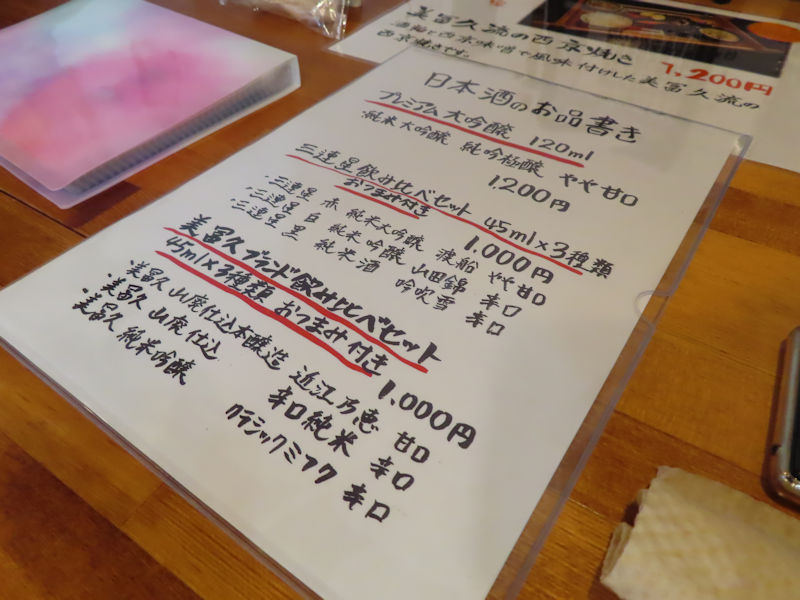 美冨久流の西京焼き
1,200円
酒粕と西京味噌で風味付けした美冨久流の
西京焼きです。
日本酒のお品書き
プレミアム大吟醸 120ml
1200円
純米大吟醸 純吟極醸 やや甘口
三連星飲み比べセット 45ml×3種類
おつまみ付き 1,000円
・三連星 赤 純米大吟醸 渡船 やや甘口
・三連星 白 純米吟醸 山田錦 辛口
・三連星 黒 純米酒 吟吹雪 辛口
美冨久ブランド飲み比べセット
45ml×3種類 おつまみ付き 1,000円
・美冨久 山廃仕込本醸造 近江乃恵 甘口
・美冨久 山廃仕込 辛口純米 辛口
・美冨久 純米吟醸 クラシックミフク 辛口